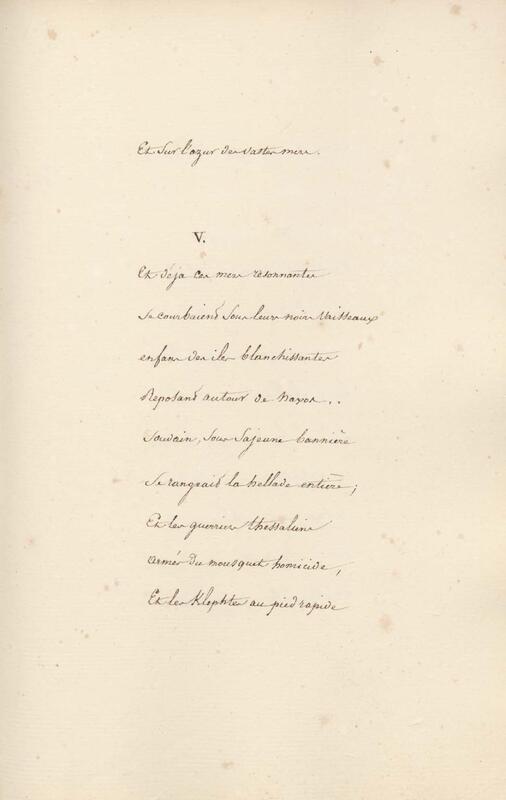 Et sur l'azur des vastes mers.
V.
Et déja ces mers resonnantes
se courbaient sous leurs noirs vaisseaux
enfans des iles blanchissantes
Reposant autour de naxos..
soudain, sous sa jeune bannière
se rangeait la hellade entière;
Et les guerriers thessaliens
armés du mousquet homicide,
Et les Klephtes au pied rapide